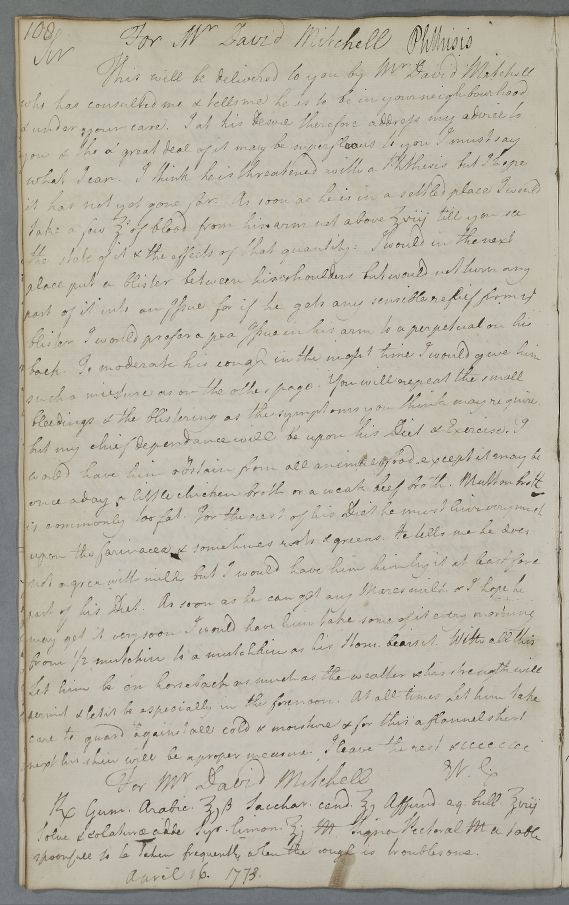 108
For Mr David Mitchell Phthisis
Sir
This will be delivered to you by Mr David Mitchell
who has consulted me & tells me he is to be in your neighbourhood
& under your care. I at his desire therefore address my advice to
you & tho' a great deal of it may be superfluous to you I must say
what I can. I think he is threatened with a Phthisis but I hope
it has not yet gone far. As soon as he is in a settled place I would
take a few ℥s of blood from his arm not above ℥viij till you see
the state of it & the effects of that quantity. I would in the next
place put a blister between his shoulders but would not turn any
part of it into an Issue for if he gets any sensible relief from ye
blister I would prefer a pea Issue in his arm to a perpetual on his
back. To moderate his cough in the night time I would give him
such a mixture as on the other page. You will repeat the small
bleedings & the blistering as the symptoms you think may require
but my chief dependance will be upon his Diet & Exercise. I
would have him abstain from all animal food except it may be
once a day a little chicken broth or a weak beef broth. Mutton broth
is commonly too fat. For the rest of his Diet he must live very much
upon the farinacea & sometimes roots & greens. He tells me he does
not agree with milk but I would have him try it at least for a
part of his Diet. As soon as he can get any Mares milk & I hope he
may get it very soon I would have him take some of it every morning
from 1/2 mutchkin to a mutchkin as his Stom. bears it. With all this
let him be on horseback as much as the weather & his strength will
permit & let it be especially in the forenoon. At all times let him take
care to guard against all cold & moisture & for this a flannel shirt
next his skin will be a proper measure. I leave the rest &cccccc
For Mr David Mitchell W. C.
Rx Gum. Arabic. ℥jβ Sacchar. cand. ℥j Affund aq. bull. ℥viij
Solve & colaturae adde Syr. limon. ℥j M Signa Pectoral M a table
spoonfull to be taken frequently when the cough is troublesome.
April 16. 1773.